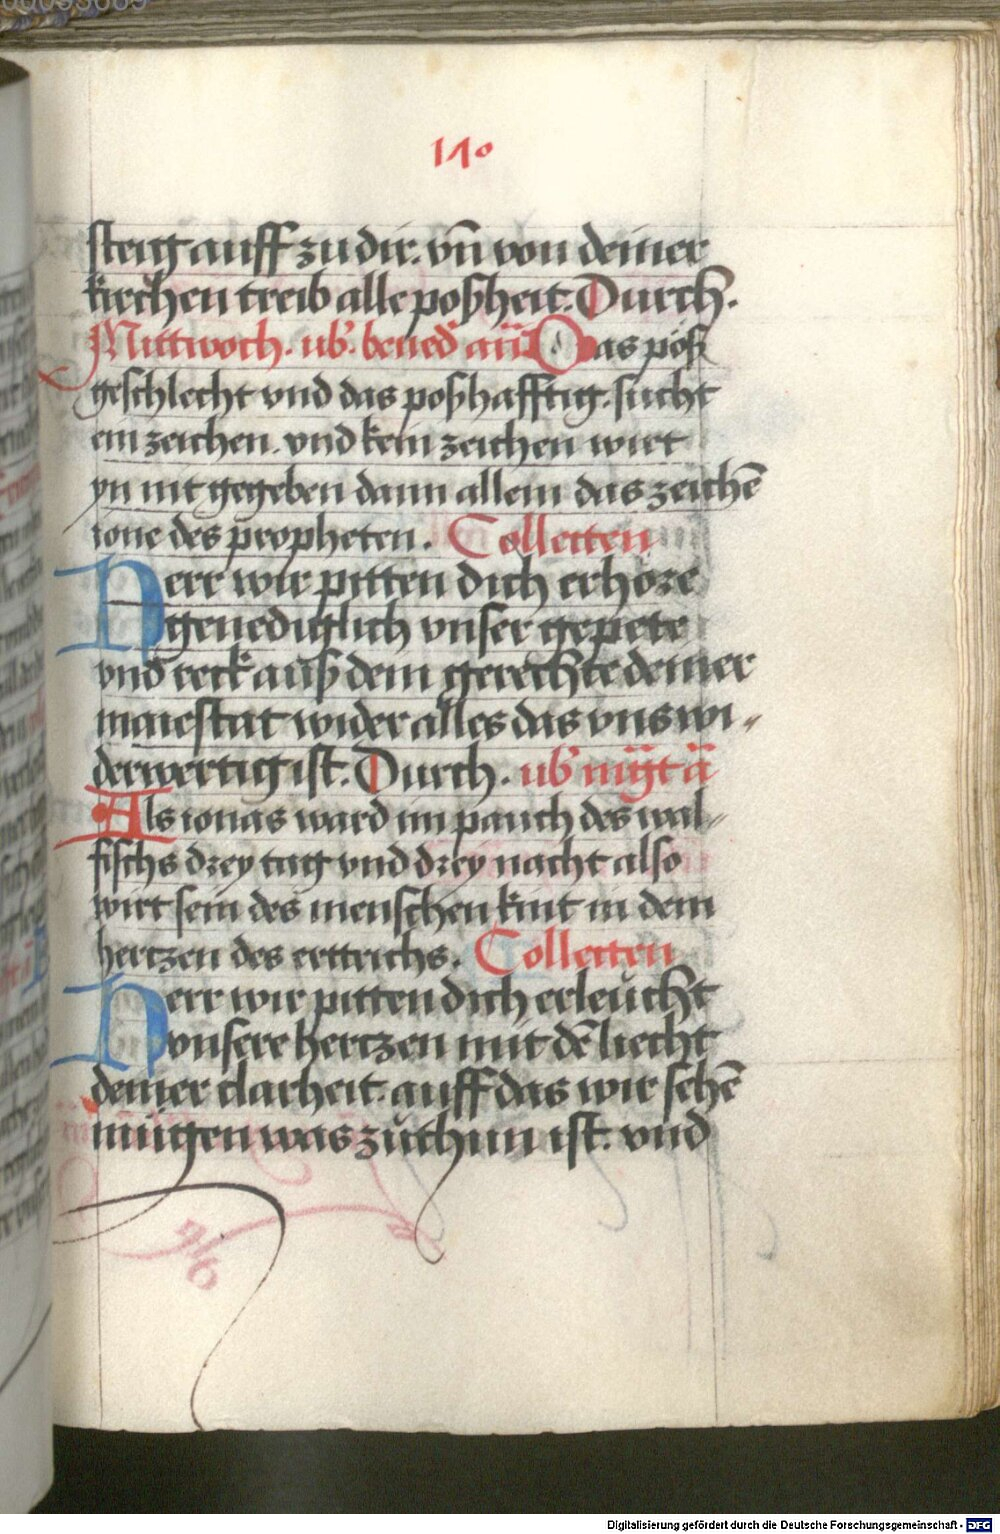 00093689
110
steig auff zu dir. vn̄ von deiner
kirchen treib alle poßheit. Durch.
Mittwoch. ub'. bened' an̄ Das pöß
geschlecht vnd das poßhafftig. sucht
ein zeichen. vnd kein zeichen wirt
yn nit gegeben dann allein das zeichē
ione des propheten. Collecten
Herr wir pitten dich erhöre
genediglich vnser gepete
vnd reck auß dem gerechte deiner
maiestat wider alles das vns wi-
derwertig ist. Durch. ub' mgt ā
Als ionas ward im pauch des wal-
fischs drey tag vnd drey nacht also
wirt sein des menschen kint in dem
hertzen des ertrichs. Collecten
Herr wir pitten dich erleücht
vnsere hertzen mit dē liecht
deiner clarheit. auff das wir sehē
mügen was zůthun ist. vnd
Digitalisierung gefördert durch die Deutsche Forschungsgemeinschaft - DFG